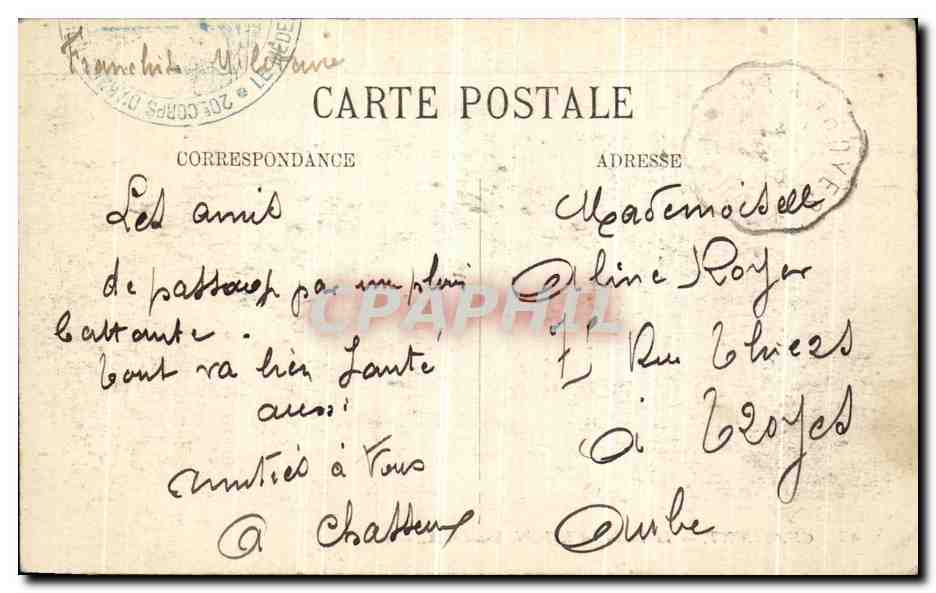 Franchise Militaire
20e CORPS D'AR
LE MEDE
CARTE POSTALE
CORRESPONDANCE
ADRESSE
Les amis
de passage par une pluie
battante.
tout va bien Santé
aussi
Amitiés à Vous
A Chasseur
Mademoiselle
Aline Royer
Rue Thiers
à Troyes
Aube
CPAPHIL